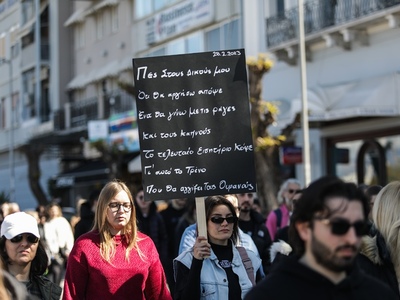 28.2.2023
Πες Στους Δικούς μου
Ότι θα αργήσω απόψε
Ένα θα γίνω με τις ράγες
Και τους καπνούς
Το τελευταίο Εισιτήριο Κόψε
Γι' αυτό το Τρένο
Που θα αγγίξει Τους Ουρανούς